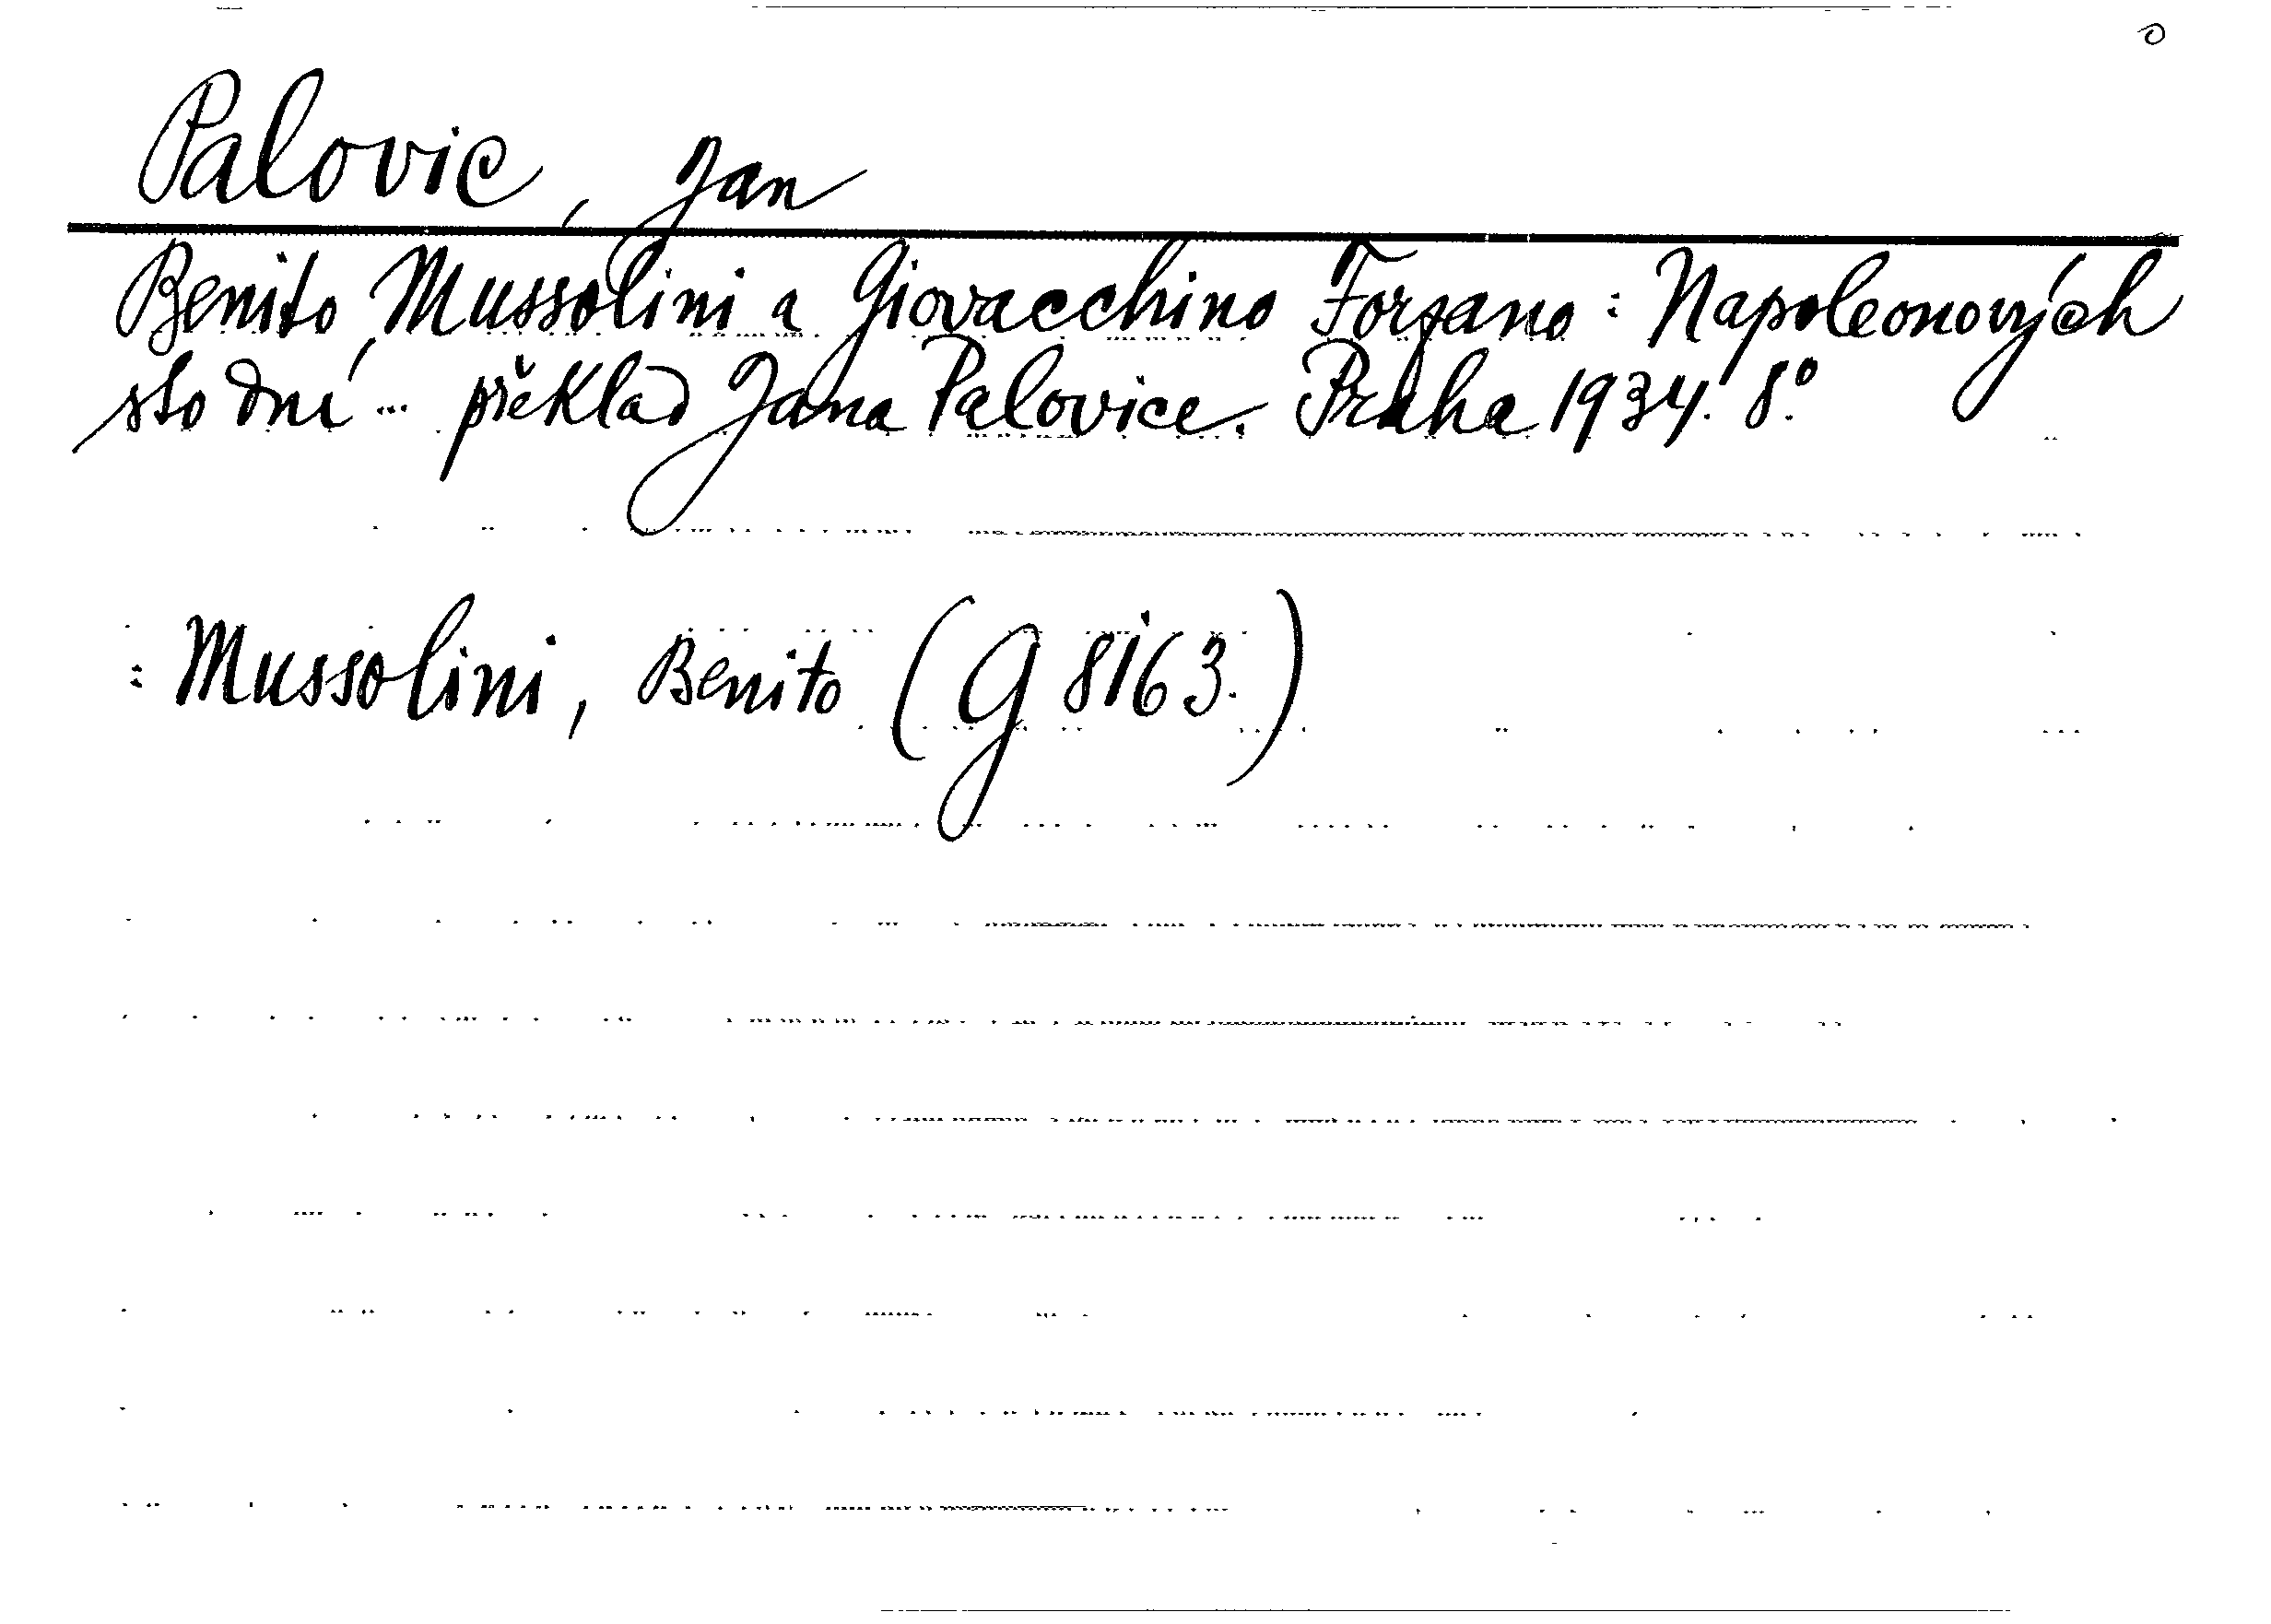 Palovic, Jan
Benito Mussolini a Giovacchino Forzano: Napoleonových
sto dní... překlad Jana Palovice. Praha 1934. 8°.
: Mussolini, Benito (G 8163.)